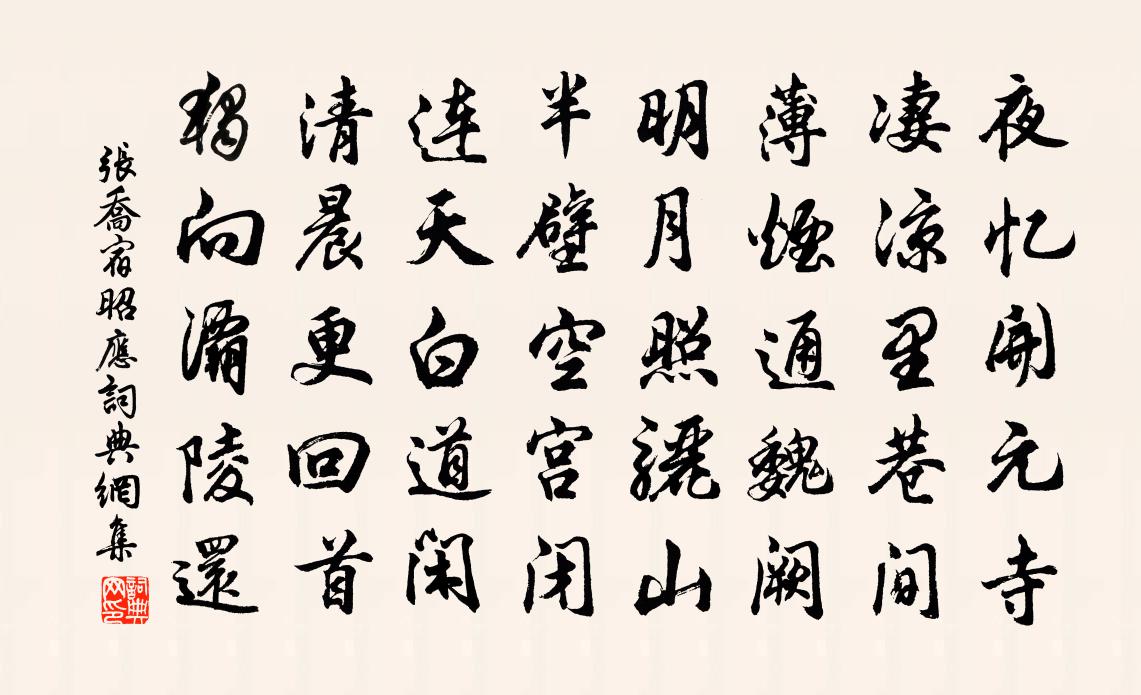 夜忆開元寺
凄涼里巷间
薄煙通魏阙
明月照骊山
半壁空宫闭
连天白道闲
清晨更回首
獨向灞陵還
張喬宿昭應詞典網集
詞典网印